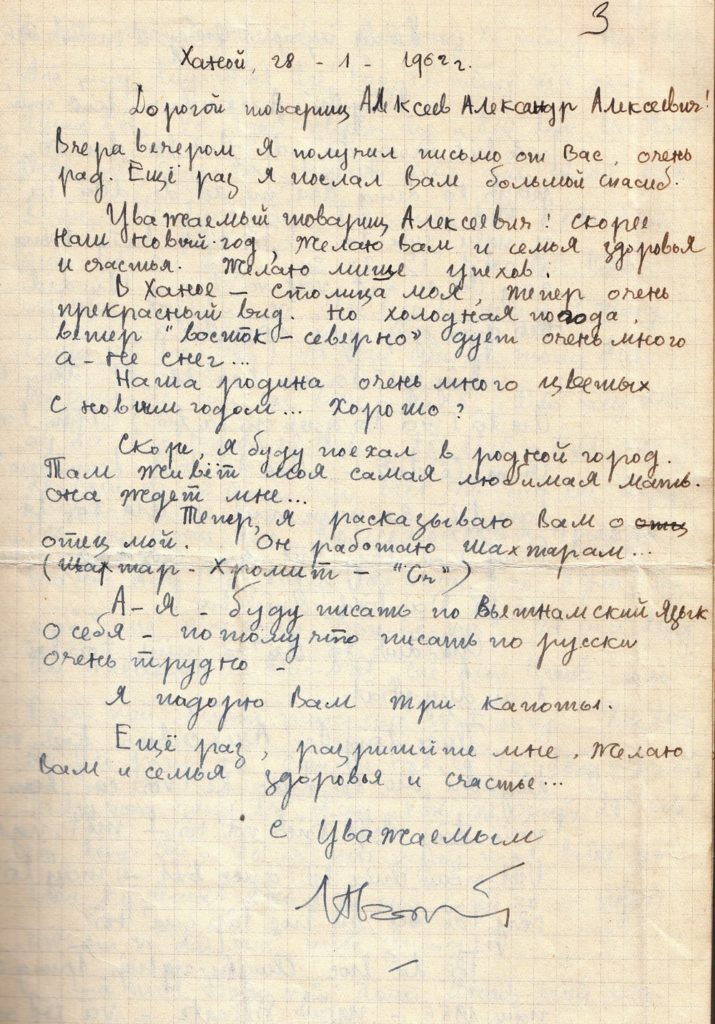 3
Ханой, 28 - 1 - 1962 г.
Дорогой товарищ Алексеев Александр Алексеевич!
Вчера вечером я получил письмо от Вас, очень
рад. Ещё раз я послал Вам большой спасиб.
Уважаемый товарищ Алексеевич! скорее
наш новый год, желаю вам и семья здоровья
и счастья. Желаю упехов!
В Ханое – столица моя, тепер очень
прекрасный вид. Но холодная погода,
ветер "восток – северно" дует очень много
а – не снег...
Наша родина очень много цветых
с новым годом... Хорошо?
Скоре, я буду поехал в родной город.
Там живёт моя самая любимая мать.
она ждет мне...
Тепер, я расказываю Вам о отц
отец мой. Он работаю шахтарам...
(шахтар - Хромит – "Cr")
А – Я – буду писать по Вьетнамский язык
о себя – потому что писать по русски
очень трудно –
Я подорю Вам три капоты.
Ещё раз, разришите мне, желаю
вам и семья здоровья и счастье...
с Уважаемым